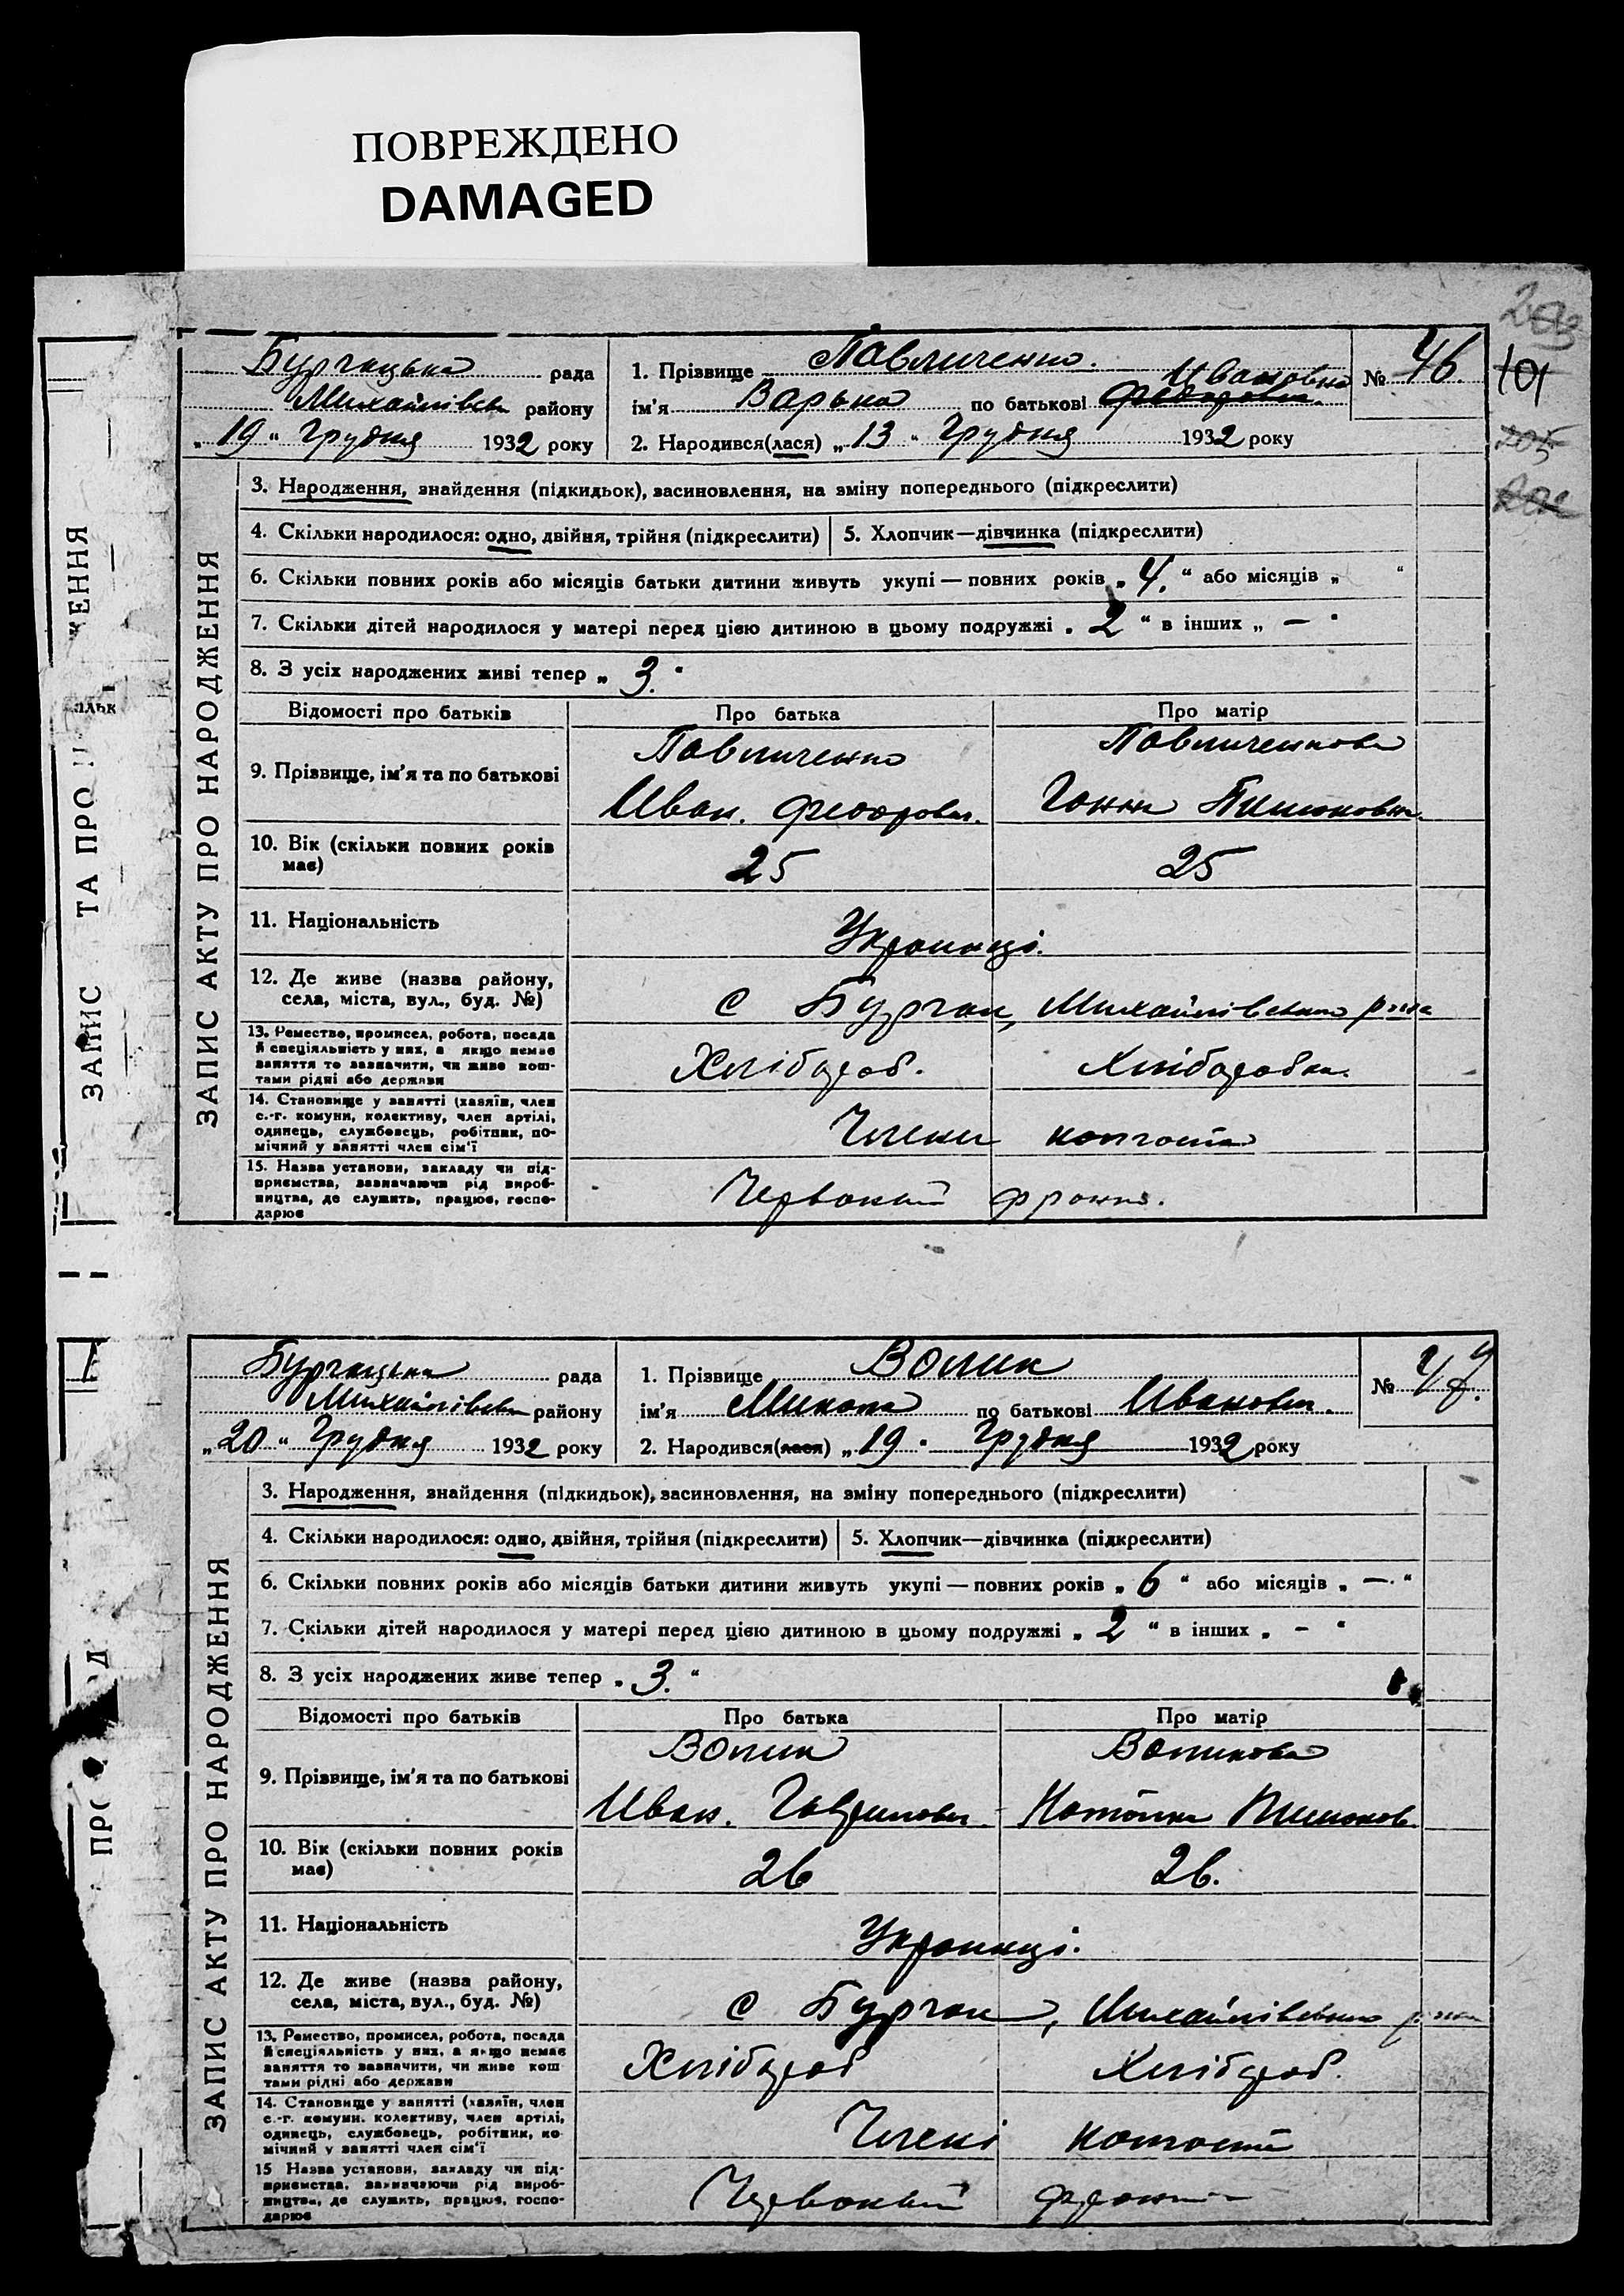 ПОВРЕЖДЕНО
DAMAGED
101
Бурчацька рада
Михайлівськ району
„ 19 “ Грудня 1932 року
1. Прізвище Павличенко.
ім'я Варька по батькові Федоровна. Ивановна
№ 46.
2. Народився(лася) „ 13 “ Грудня 1932 року
ЗАПИС АКТУ ПРО НАРОДЖЕННЯ
3. Народження, знайдення (підкидьок), засиновлення, на зміну попереднього (підкреслити)
4. Скільки народилося: одно, двійня, трійня (підкреслити)
5. Хлопчик—дівчинка (підкреслити)
6. Скільки повних років або місяців батьки дитини живуть укупі — повних років „ 4. “ або місяців „ “
7. Скільки дітей народилося у матері перед цією дитиною в цьому подружжі „ 2 “ в інших „ — “
8. З усіх народжених живі тепер „ 3. “
Відомості про батьків
Про батька
Про матір
9. Прізвище, ім'я та по батькові
Павличенко
Иван. Федорович.
Павличенкова
Ганна
10. Вік (скільки повних років має)
25
25
11. Національність
Українці.
12. Де живе (назва району,
села, міста, вул., буд. №)
с Бурчак, Михайлівського р-на
13. Ремество, промисел, робота, посада
й спеціяльність у них, а якщо немає
заняття то зазначити, чи живе кош-
тами рідні або держави
Хлібороб.
Хлібороба.
14. Становище у занятті (хазяїн, член
с.-г. комуни, колективу, член артілі,
одинець, службовець, робітник, по-
мічний у занятті член сім'ї
Члени колгоспа
15. Назва установи, закладу чи під-
приємства, зазначаючи рід вироб-
ництва, де служить, працює, госпо-
дарює
Червоний фронт.
Бурчацька рада
Михайлівськ району
„ 20 “ Грудня 1932 року
1. Прізвище Волик
ім'я Микола по батькові Иванович.
№ 47.
2. Народився(лася) „ 19 “ Грудня 1932 року
ЗАПИС АКТУ ПРО НАРОДЖЕННЯ
3. Народження, знайдення (підкидьок), засиновлення, на зміну попереднього (підкреслити)
4. Скільки народилося: одно, двійня, трійня (підкреслити)
5. Хлопчик—дівчинка (підкреслити)
6. Скільки повних років або місяців батьки дитини живуть укупі — повних років „ 6 “ або місяців „ — “
7. Скільки дітей народилося у матері перед цією дитиною в цьому подружжі „ 2 “ в інших „ — “
8. З усіх народжених живе тепер „ 3. “
Відомості про батьків
Про батька
Про матір
9. Прізвище, ім'я та по батькові
Волик
Иван. Гаврилович
Воликова
Наталка
10. Вік (скільки повних років має)
26
26.
11. Національність
Українці.
12. Де живе (назва району,
села, міста, вул., буд. №)
с Бурчак, Михайлівського
13. Ремество, промисел, робота, посада
й спеціяльність у них, а якщо немає
заняття то зазначити, чи живе кош
тами рідні або держави
Хлібороб
Хлібороб.
14. Становище у занятті (хазяїн, член
с.-г. комуни. колективу, член артілі,
одинець, службовець, робітник, по
мічний у занятті член сім'ї
Члені колгоспа
15 Назва установи, закладу чи під-
приємства, зазначаючи рід вироб-
ництва, де служить, працює, госпо-
дарює
Червоний фронт